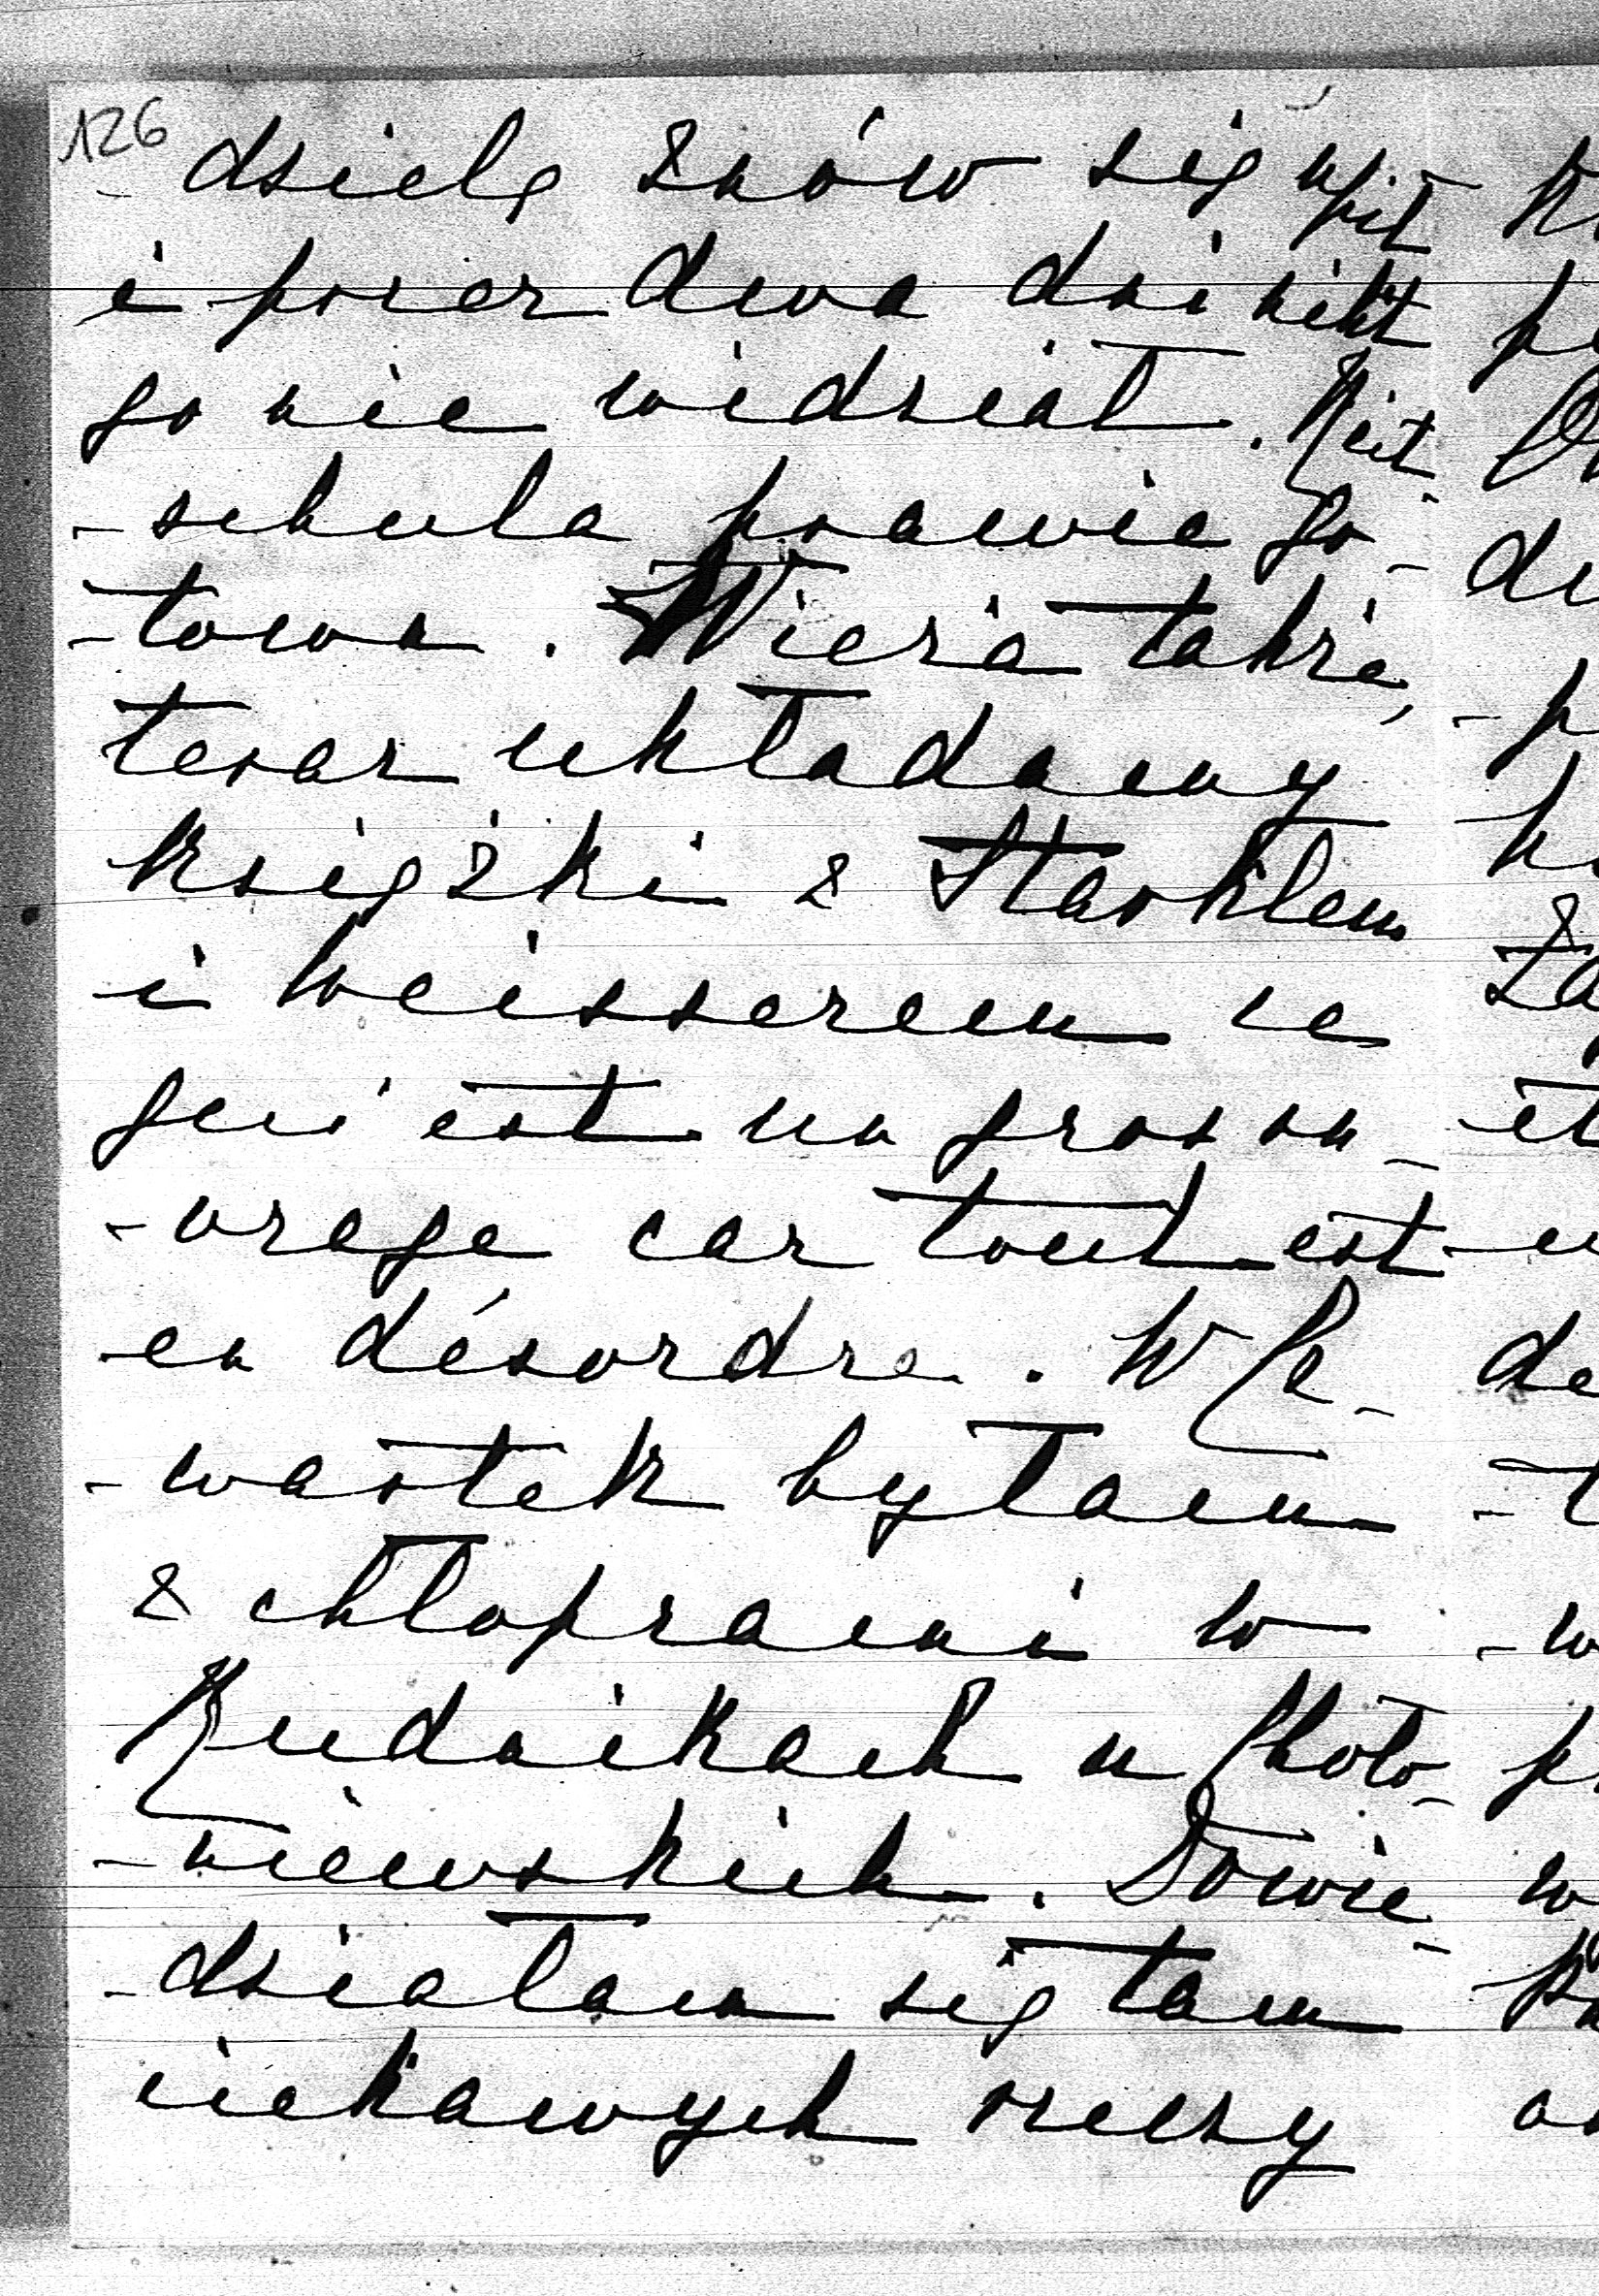 126
-dzielę znów się upił
i przez dwa dni nikt
go nie widział. Reit
-schula prawie go-
-towa. Wieża także,
teraz układamy
książki z Starklem
i Weisserem ce
qui est un gros ou-
-vrage car tout est
en désordre. W Cz-
-wartek byłam
z chłopcami w
Rudnikach u Choło-
-niewskich. Dowie-
-działam się tam
ciekawych rzeczy